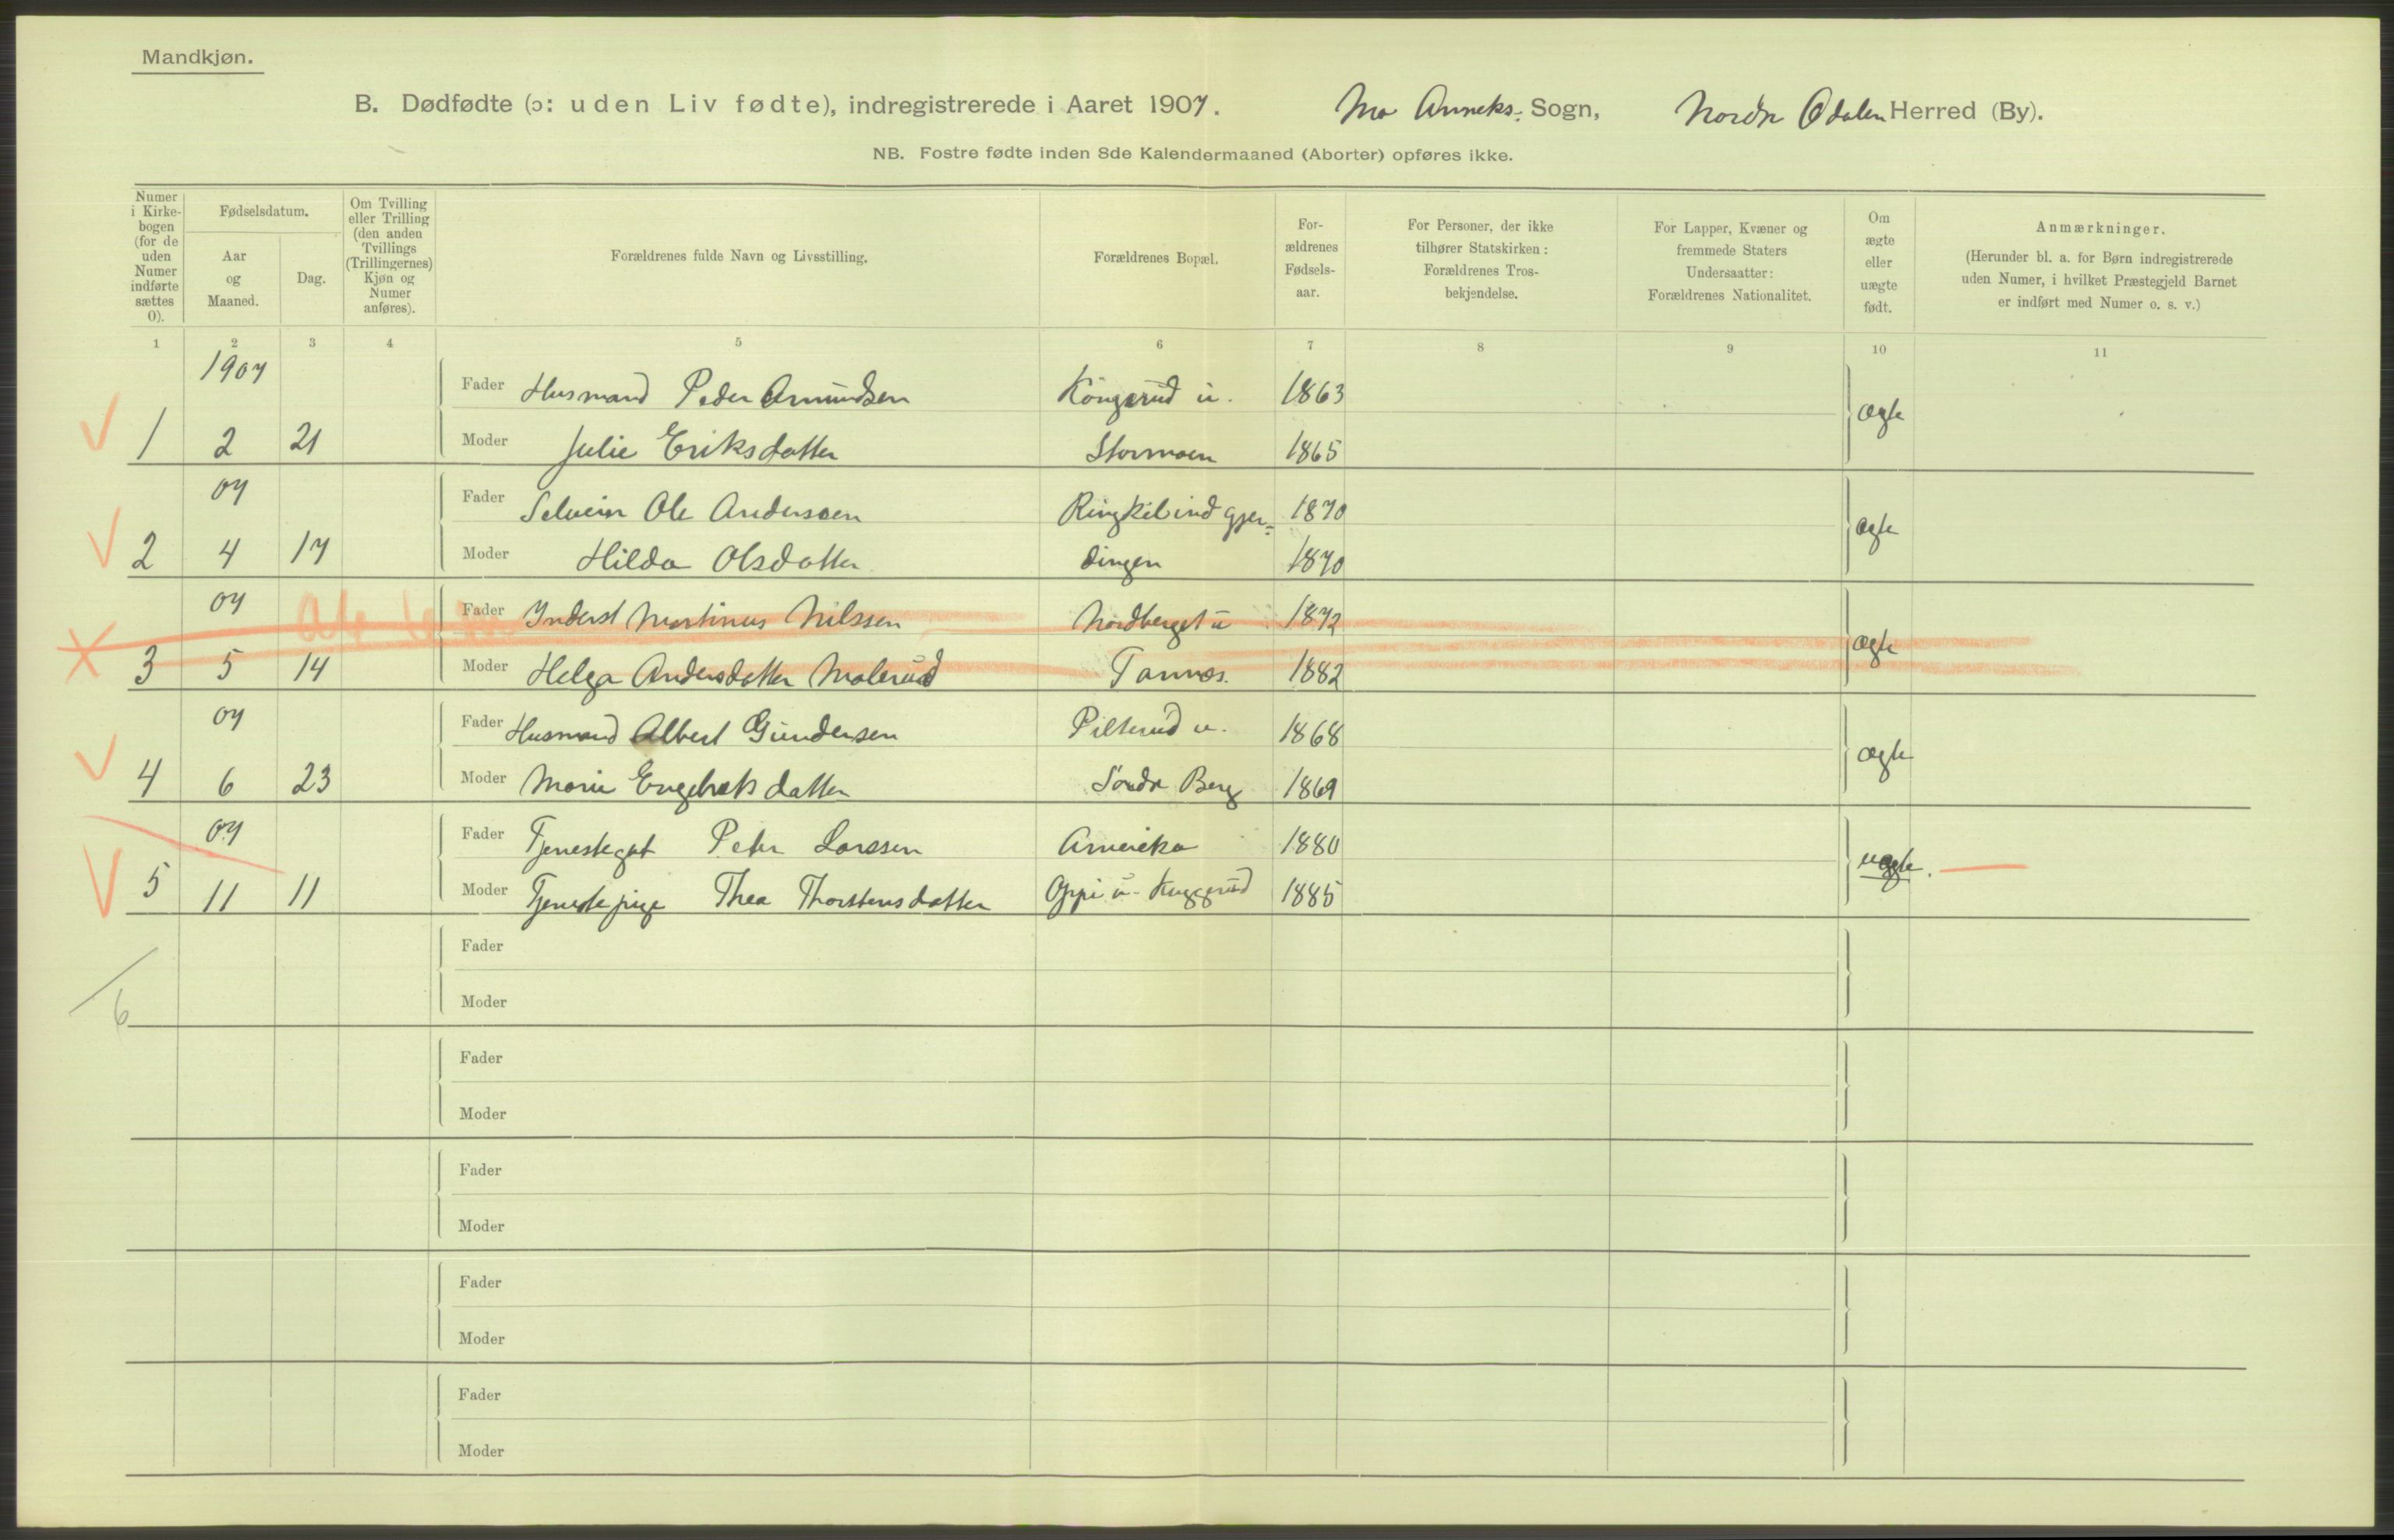 Mandkjøn.
B. Dødfødte (ɔ: uden Liv fødte), indregistrerede i Aaret 1907. Mo Anneks- Sogn, Nordr Odalen Herred (By).
NB. Fostre fødte inden 8de Kalendermaaned (Aborter) opføres ikke.
Numer i Kirke-bogen (for de uden Numer indførte sættes 0).
Fødselsdatum.
Aar og Maaned.
Dag.
Om Tvilling eller Trilling (den anden Tvillings (Trillingernes) Kjøn og Numer anføres).
Forældrenes fulde Navn og Livsstilling.
Forældrenes Bopæl.
For-ældrenes Fødsels-aar.
For Personer, der ikke tilhører Statskirken: Forældrenes Tros-bekjendelse.
For Lapper, Kvæner og fremmede Staters Undersaatter: Forældrenes Nationalitet.
Om ægte eller uægte født.
Anmærkninger.
(Herunder bl. a. for Børn indregistrerede uden Numer, i hvilket Præstegjeld Barnet er indført med Numer o. s. v.)
1 2 3 4 5 6 7 8 9 10 11
1907 Fader Husmand Peder Amundsen Kongerud u. 1863 ægte
1 2 21 Moder Julie Eriksdatter Stormoen 1865
07 Fader Selveier Ole Anderssen Ringkilind gjer- 1870 ægte
2 4 17 Moder Hilda Olsdatter dingen 1870
07 Fader Inderst Martinus Nilssen Nordberget u 1872 ægte
3 5 14 Moder Helga Andersdatter Malerud Tannes. 1882
07 Fader Husmand Albert Gundersen Pilterud u. 1868 ægte
4 6 23 Moder Marie Engebretsdatter Søndr Berg 1869
07 Fader Tjenestegut Peter Larssen Amerika 1880 uægte.
5 11 11 Moder Tjenestepige Thea Thorstensdatter Oppi u. Kuggerud 1885
Fader
Moder
6
Fader
Moder
Fader
Moder
Fader
Moder
Fader
Moder